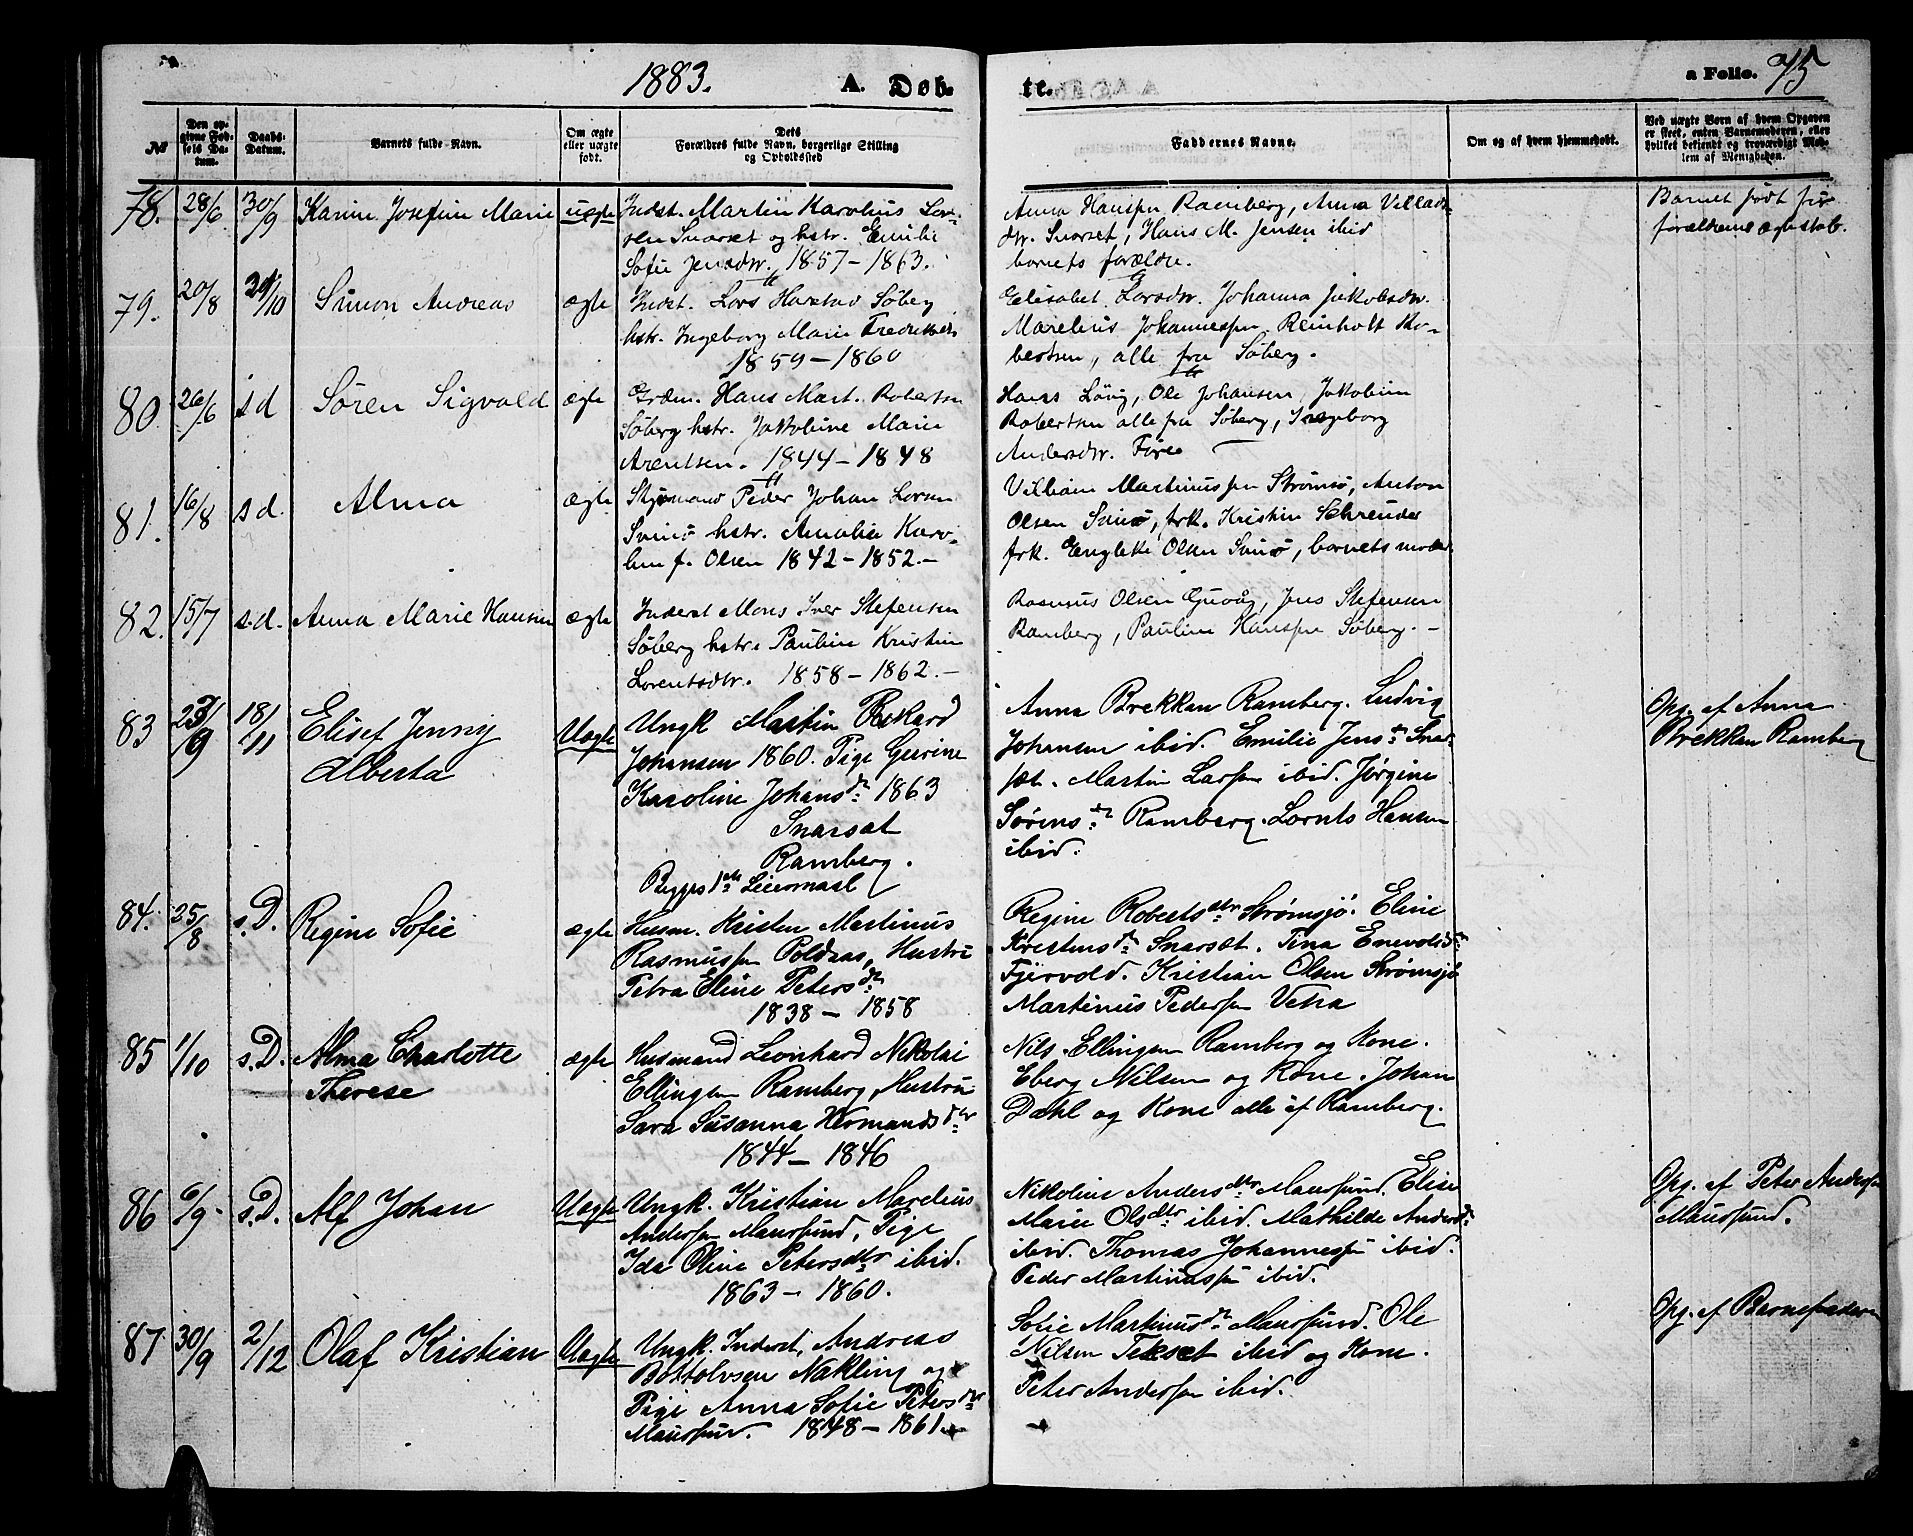 1883.
A. Døb-
te.
a Folio. 75
№
Den op-
givne Fød-
sels Da-
tum.
Daabs-
Datum.
Barnets fulde Navn.
Om ægte
eller uægte
født.
Dets
Forældres fulde Navn, borgerlige Stilling
og Opholdssted
Faddernes Navne.
Om og af hvem hjemmedøbt.
Ved uægte Børn af hvem Opgaven
er skeet, enten Barnemoderen, eller
hvilket bekjendt og troværdigt Med-
lem af Menigheden.
78. 28/6 30/9 Karine Josefine Marie uægte Inderst. Martin Karolius Lar-
sen Snarset og hstr. Emilie
Sofie Jensdtr. 1857-1863.
Anna Hanssen Ramberg, Anna Villads-
dtr. Snarset, Hans M. Jensen ibid
barnets forældre.
Barnet født før
forældrenes ægteskab.
79. 20/8 /10 Simon Andreas ægte Inderst. Lars Harstad Søberg
hstr. Ingeborg Marie Fredriksdtr
1859-1860
Elisabet Larsdtr. Johanna Jakobsdtr.
Marelius Johannessen, Reinholt Ro-
bertsen, alle fra Søberg.
80. 26/6 s d Søren Sigvald ægte Hans Mart. Robertsen
Søberg hstr. Jakobine Marie
Arentsen. 1844-1848
Hans Løvig, Ole Johansen, Jakobine
Robertsen alle fra Søberg, Ingeborg
Andersdtr.
81. 16/8 s d. Alma ægte Styrmand Peder Johan Larsen
Svinø hstr. Amalia Karo-
line f. Olsen 1842-1852.-
Vilhelm Martinussen Strømsø, Anton
Olsen Svinø, frk. Kristin Schreuder
frk. Olsen Svinø, barnets moder.
82. 15/7 s.d. Anna Marie Hansine ægte Inderst Mons Iver Stefensen
Søberg hstr. Pauline Kristine
Lorentsdtr. 1858-1862.-
Rasmus Olsen Gurvåg, Jens Stefensen
Ramberg, Pauline Hanssen Søberg. -
83 23/9 18/11 Elisef Jenny
Alberta Uægte Ungk. Martin Rikard
Johansen 1860. Pige Gurine
Karoline Johansdtr 1863
Snarsæt
Ramberg.
Begges 1ste Leiermaal
Anna Brekkan Ramberg. Ludvig
Johansen ibid. Emilie Jensdtr Snar-
sæt. Martin Larsen ibid. Jørgine
Sørensdtr Ramberg. Lornts Hansen
ibid.
Opg. af Anna
Brekkan Ramberg
84. 25/8 s.D. Regine Sofie ægte Husm. Kristen Martinus
Rasmussen Poldras, Hustru
Petra Eline Petersdtr
1838 - 1858
Regine Robertsdtr Strømsjø. Eline
Kristensdtr Snarsæt. Tina Enevoldsdtr
Fjervold. Kristian Olsen Strømsjø
Martinus Pedersen Vetta
85 1/10 s.D. Alma Charlotte
Therese ægte Husmand Leonhard Nikolai
Ellingsen Ramberg, Hustru
Sara Susanna Hermandsdtr
1844 - 1846
Nils Ellingsen Ramberg og Kone.
Eberg Nilsen og Kone. Johan
Dahl og Kone alle af Ramberg.
86 6/9 s.D. Alf Johan Uægte Ungk. Kristian Marelius
Andersen Maursund, Pige
Ida Oline Petersdtr ibid.
1863 - 1860.
Nikoline Andersdtr Maursund. Elise
Marie Olsdtr ibid. Mathilde Andersdtr
ibid. Thomas Johannesen ibid.
Peder Martinussen ibid.
Opg. af Peter Andersen
Maursund.
87 30/9 2/12 Olaf Kristian Uægte Ungk. Inderst, Andreas
Bottolvsen Nakling og
Pige Anna Sofie Petersdtr
Maursund. 1848 - 1861.
Sofie Martinusdtr Maursund. Ole
Nilsen Tekset ibid og Kone.
Peter Andersen ibid.
Opg. af Barnefaderen